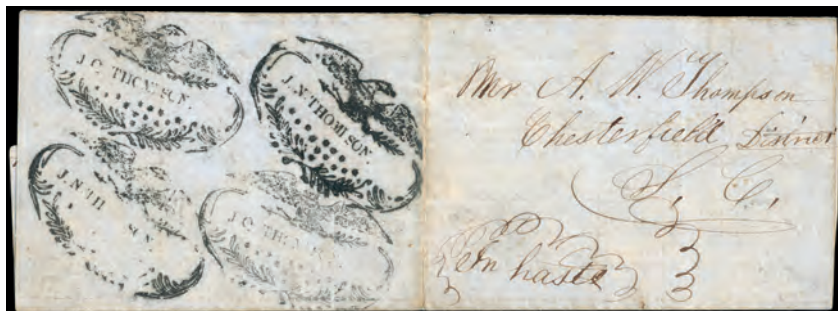 J. C. THOMSON
J. N. THOMPSON
J. N. TH SON
J. C. THOMSON
Mr A. W. Thompson
Chesterfield District
S. C,
In haste